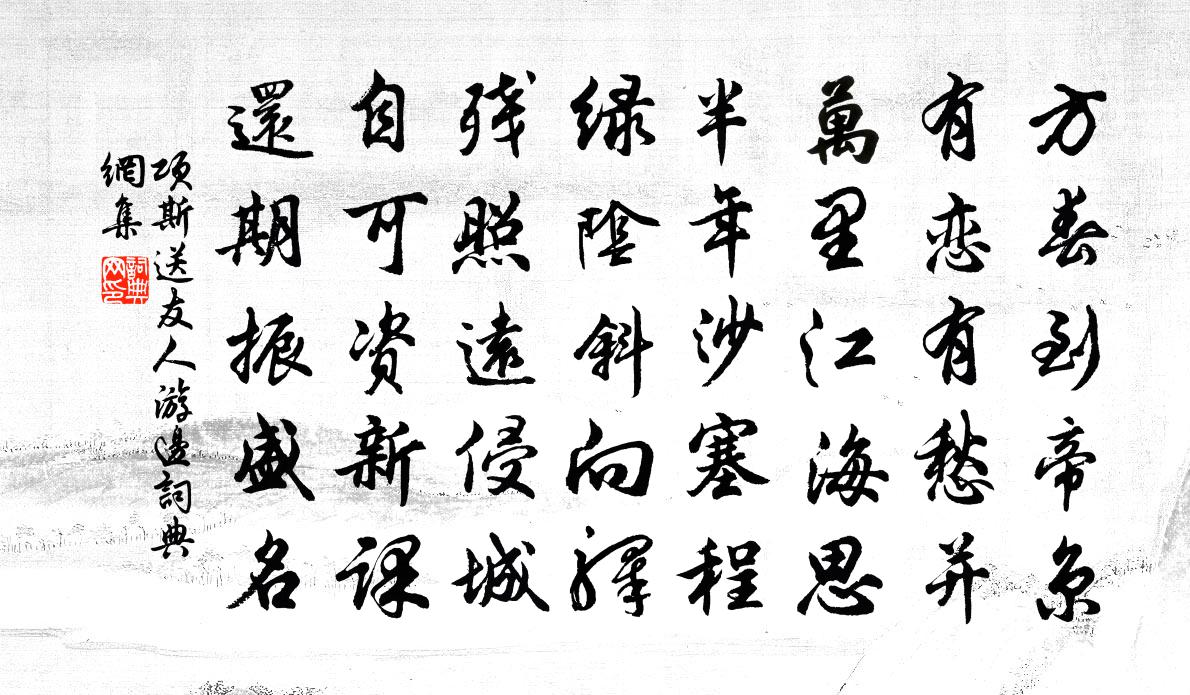 方春到帝京
有恋有愁并
萬里江海思
半年沙塞程
绿陰斜向驛
残照遠侵城
自可资新课
還期振盛名
项斯送友人游邊詞典
網集
詞典
网印